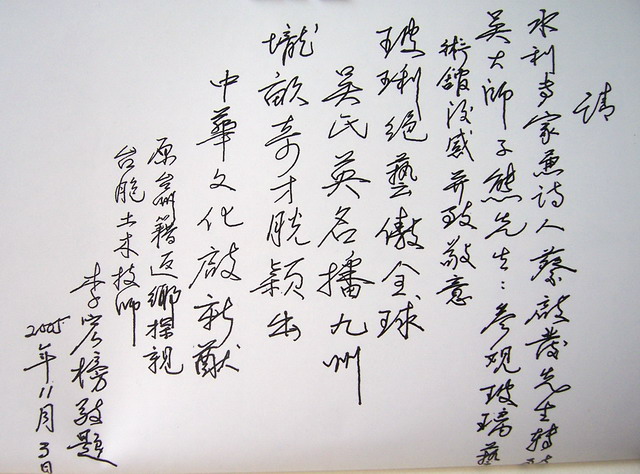 請
水利専家兼詩人蔡啟發先生轉
吴大師子熊先生：参观玻璃藝
術舘後感并致敬意
玻琍绝藝傲全球
吴氏英名播九州
壠畝奇才脱穎出
中華文化啟新猷
原台籍返鄉探親
台胞土木技师
李宏榜敬題
2005年11月3日